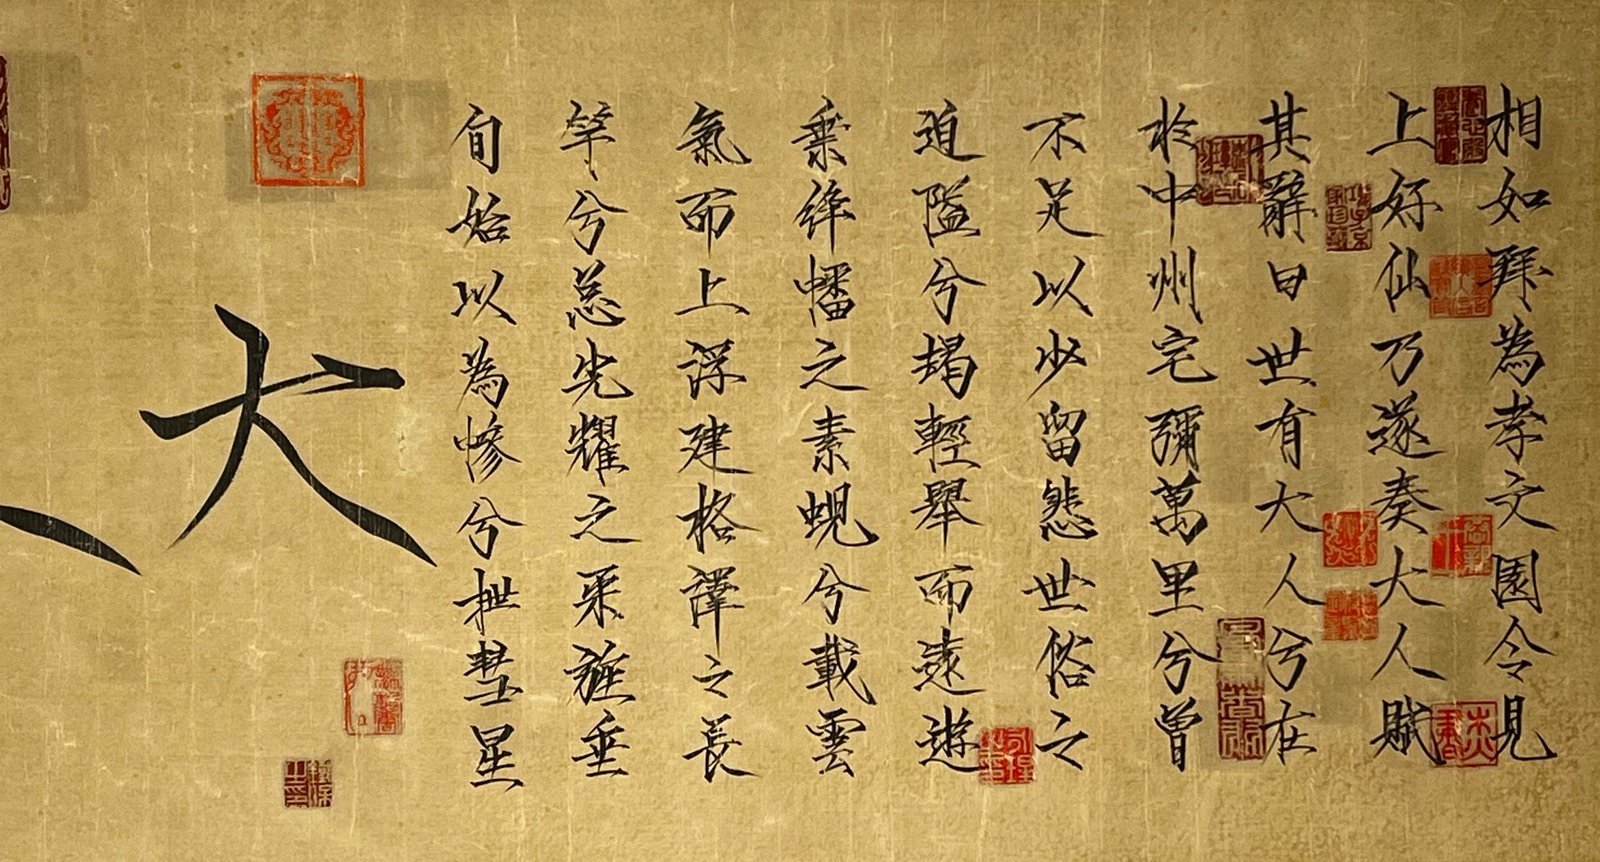 相如拜為孝文園令見
上好仙乃遂奏大人賦
其辭曰世有大人兮在
於中州宅彌萬里兮曾
不足以少留悲世俗之
迫隘兮朅輕舉而遠遊
乘絳幡之素蜺兮載雲
氣而上浮建格澤之長
竿兮總光耀之采旄垂
旬始以為幓兮抴彗星
大